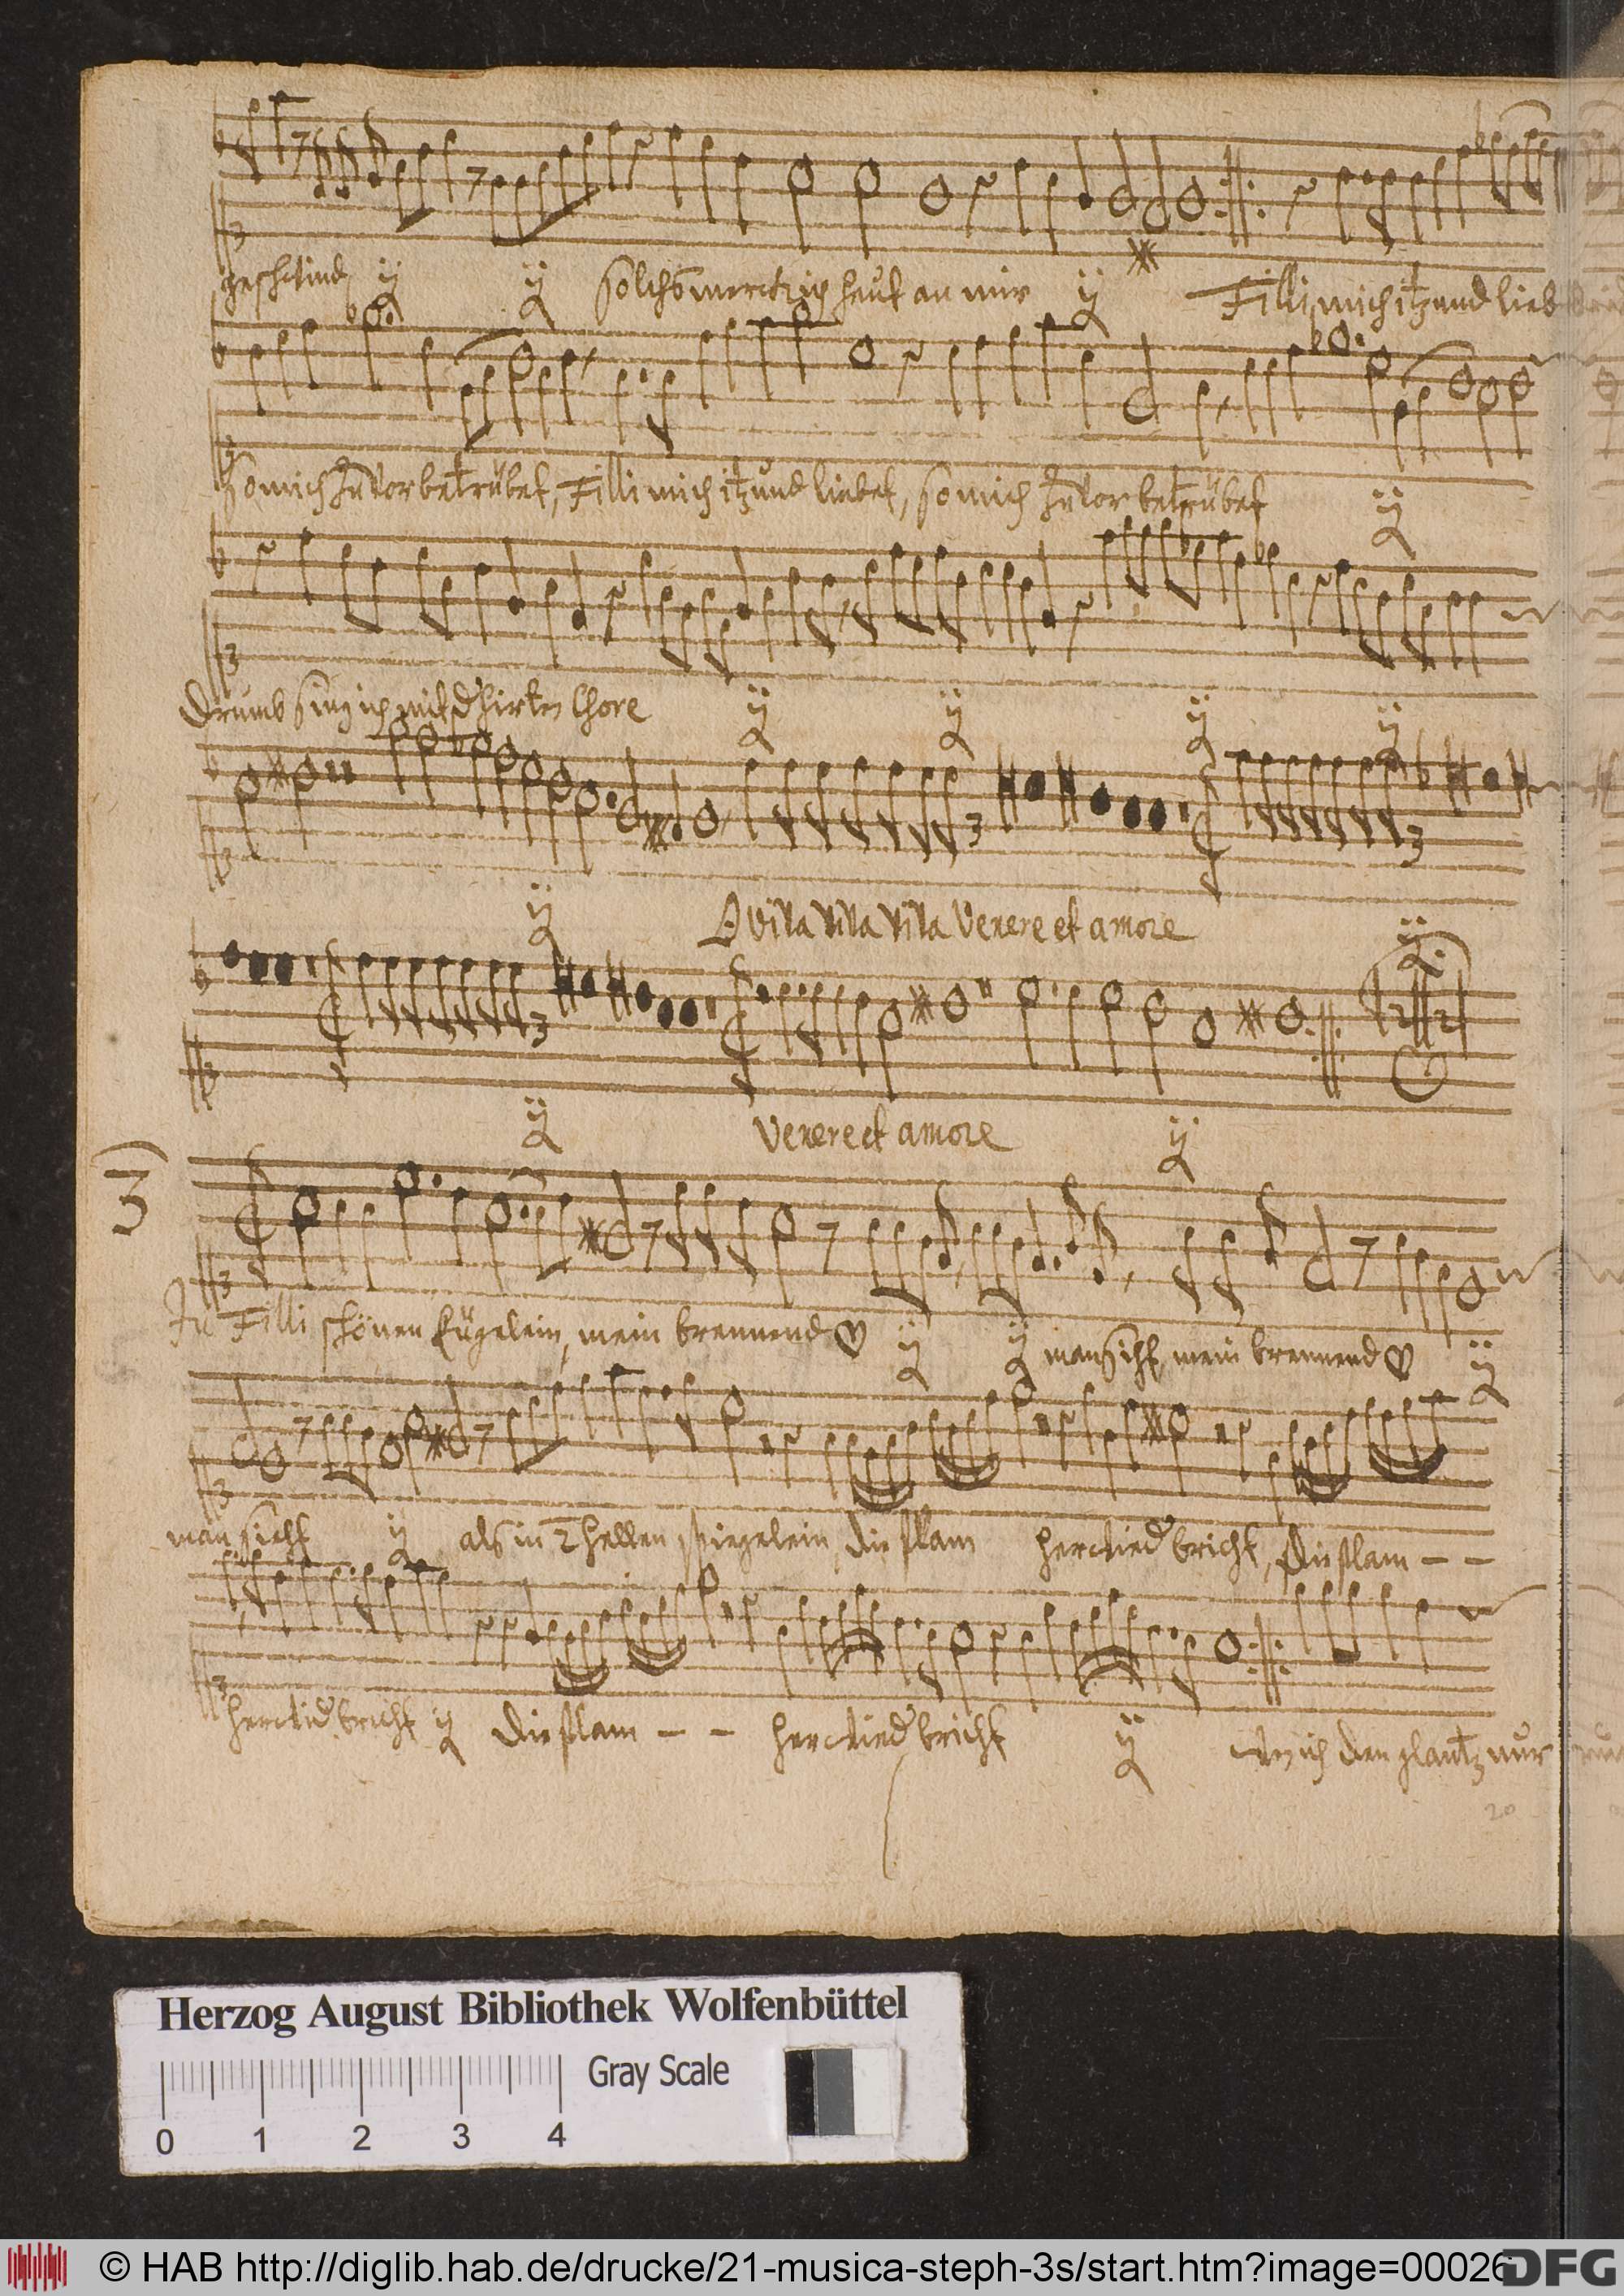 geschwind ij ij solchs merck ich heut an mir ij Filli mich itzund lieb
so mich zuvor betrübet, Filli mich itzund liebet, so mich zuvor betrübet ij
Drumb sing ich mit d hirten Chore ij ij ij ij
ij O viva viva viva Venere et amore ij
ij Venere et amore ij
3
In Filli schönen Eügelein, mein brennend ij ij man sicht mein brennend ij
man sicht ij als in 2 hellen spiegelein, die flam herwied bricht, die flam - -
herwied bricht ij die flam - - herwied bricht ij ich den glantz nur
20
Herzog August Bibliothek Wolfenbüttel
Gray Scale
0 1 2 3 4
© HAB http://diglib.hab.de/drucke/21-musica-steph-3s/start.htm?image=00026
DFG